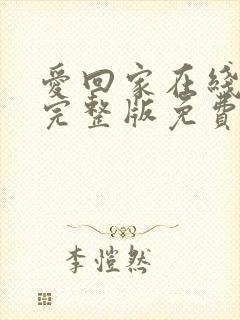 愛回家在綫
完整版免費
李愷然